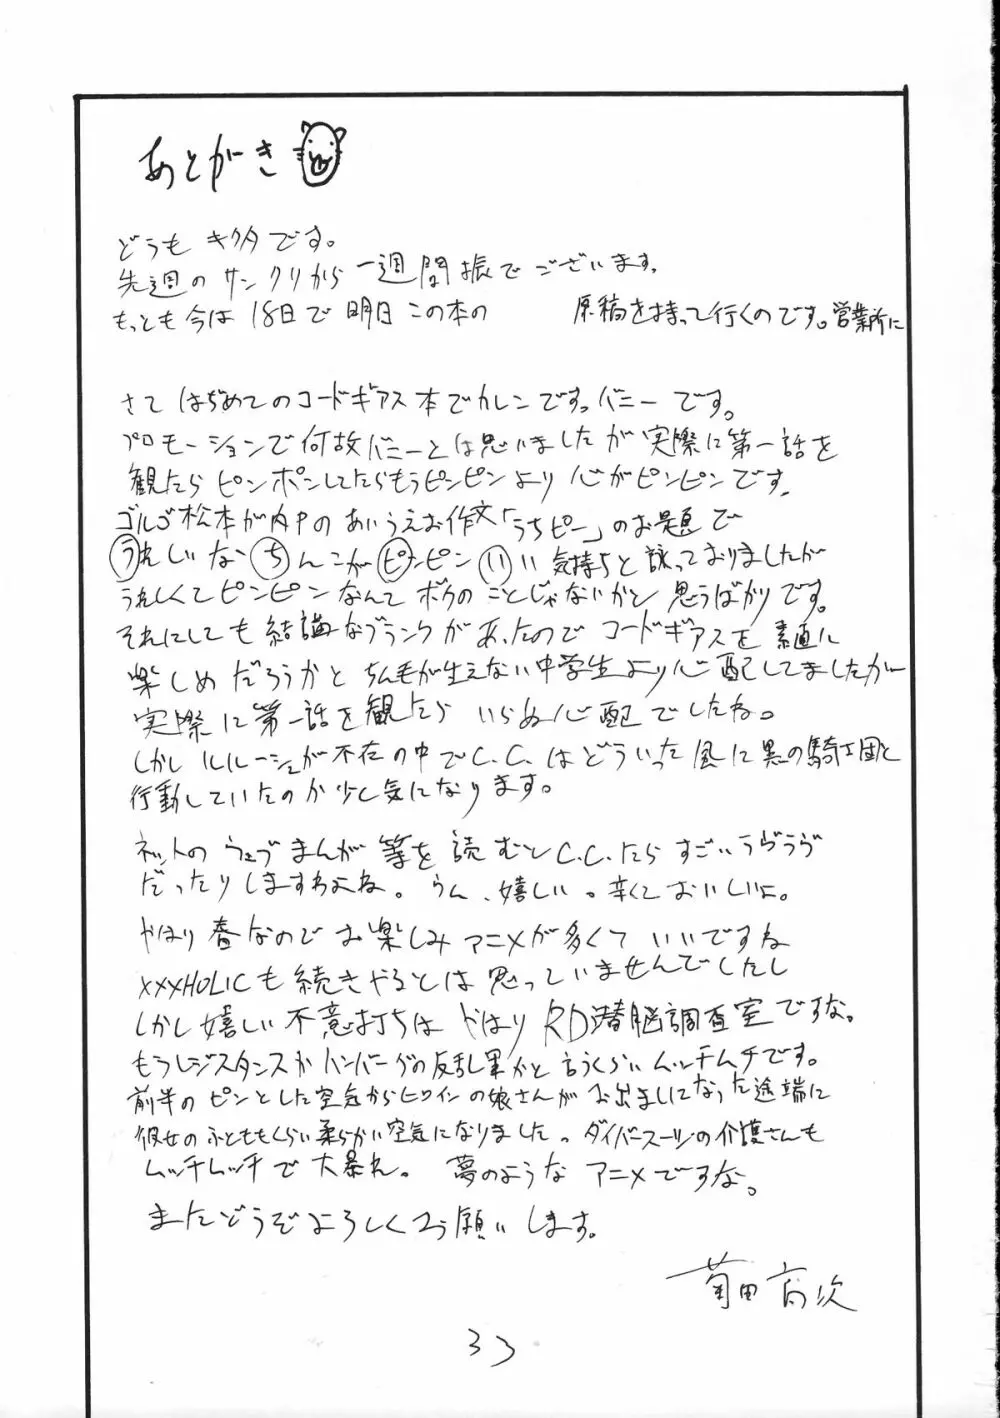 あとがき
どうも キクタです。
先週の サンクリから 一週間振でございます。
もっとも今は 18日で 明日 この本の 原稿を持って行くのです。営業所に
さて はぢめてのコードギアス本でカレンです。バニーです。
プロモーションで何故バニーとは思いましたが実際に第一話を
観たら ピンポンしてたらもうピンピンより 心がピンピンです。
ゴルゴ松本が内Pの あいうえお作文「うちピー」のお題で
うれしいな ちんこが ピンピン いい 気持ちと 詠っておりましたが
うれしくてピンピン なんて ボクの ことじゃないかと 思うばかりです。
それにしても 結構なブランクが あったので コードギアスを 素直に
楽しめ だろうかと ちん毛が生えない中学生より心配してましたが
実際に 第一話を観たら いらぬ心配でしたね。
しかし ルルーシュが 不在の中で C.C. は どういった 風に 黒の騎士団と
行動していたのか少し気になります。
ネットの ウェブまんが 等を 読むと C.C.たら すごいラヴラヴ
だったりしますわよね。うん、嬉しい。辛くて おいしいよ。
やはり 春なので お楽しみ アニメが多くて いいですね
XXXHOLICも続きやるとは 思っていませんでしたし
しかし 嬉しい 不意打ちは やはり RD潜脳調査室ですな。
もうレジスタンスか ハンバーグの反乱軍かと 言うくらい ムッチムチです。
前半の ピンとした空気からヒロインの娘さんが お出ましになった途端に
彼女の ふとももくらい柔らかい空気になりました。ダイバースーツの介護さんも
ムッチムッチで 大暴れ。 夢のような アニメですな。
またどうぞよろしくお願いします。
菊田高次
33